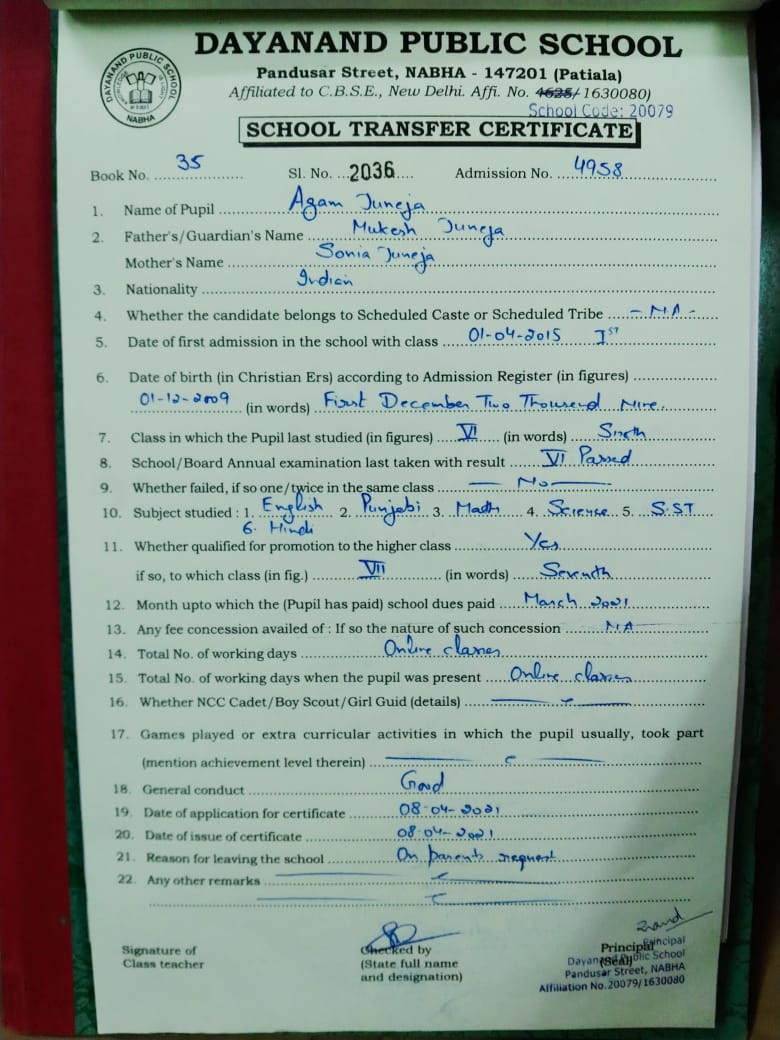 DAYANAND PUBLIC SCHOOL
Pandusar Street, NABHA - 147201 (Patiala)
Affiliated to C.B.S.E., New Delhi. Affi. No. 4625/ 1630080)
School Code: 20079
DAYANAND PUBLIC SCHOOL
NABHA
SCHOOL TRANSFER CERTIFICATE
Book No. 35 Sl. No. 2036 Admission No. 4958
1. Name of Pupil Agam Juneja
2. Father's/Guardian's Name Mukesh Juneja
Mother's Name Sonia Juneja
3. Nationality Indian
4. Whether the candidate belongs to Scheduled Caste or Scheduled Tribe - NA -
5. Date of first admission in the school with class 01-04-2015 Ist
6. Date of birth (in Christian Ers) according to Admission Register (in figures)
01-12-2009 (in words) First December Two Thousend Nine.
7. Class in which the Pupil last studied (in figures) VI (in words) Sixth
8. School/Board Annual examination last taken with result VI Passed
9. Whether failed, if so one/twice in the same class — No —
10. Subject studied : 1. English 2. Punjabi 3. Math 4. Science 5. S.ST
6. Hindi
11. Whether qualified for promotion to the higher class Yes
if so, to which class (in fig.) VII (in words) Seventh
12. Month upto which the (Pupil has paid) school dues paid March 2021
13. Any fee concession availed of : If so the nature of such concession NA
14. Total No. of working days Online classes
15. Total No. of working days when the pupil was present Online classes
16. Whether NCC Cadet/Boy Scout/Girl Guid (details)
17. Games played or extra curricular activities in which the pupil usually, took part
(mention achievement level therein)
18. General conduct Good
19. Date of application for certificate 08-04-2021
20. Date of issue of certificate 08-04-2021
21. Reason for leaving the school On parents request
22. Any other remarks
Signature of
Class teacher
Checked by
(State full name
and designation)
Principal
(Seal)
Principal
Dayanand Public School
Pandusar Street, NABHA
Affiliation No.20079/1630080